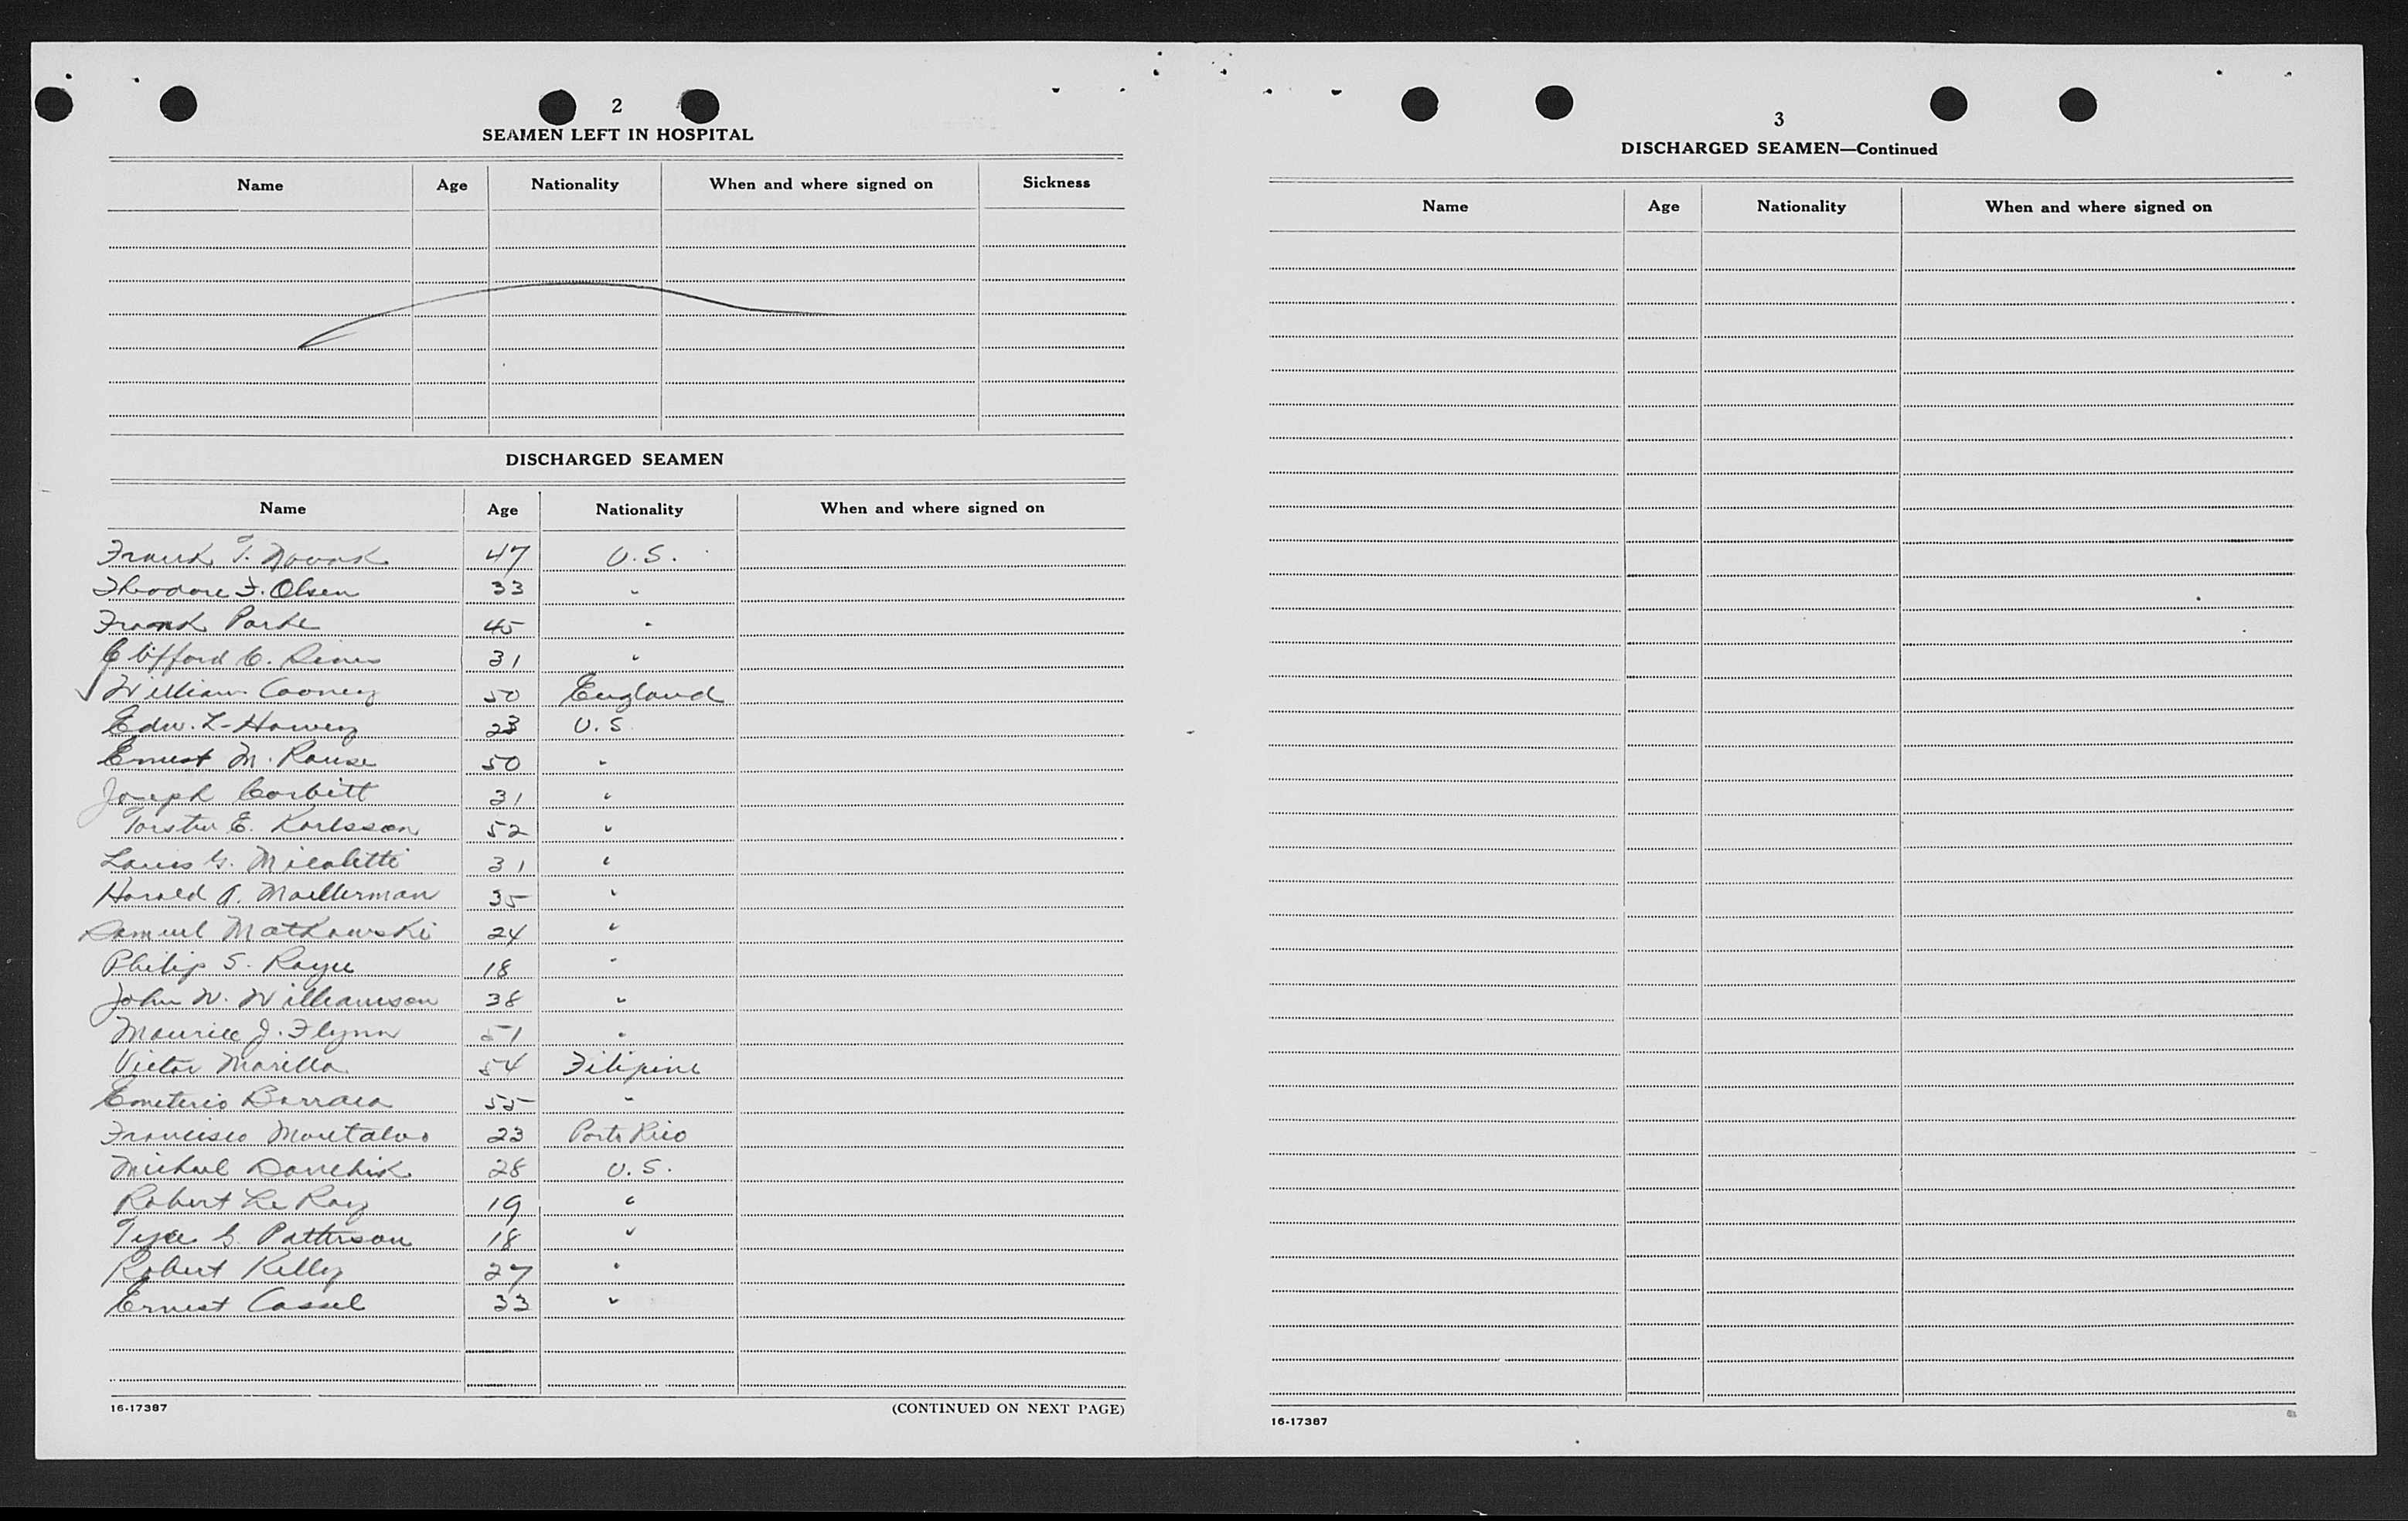 2
SEAMEN LEFT IN HOSPITAL
Name Age Nationality When and where signed on Sickness
DISCHARGED SEAMEN
Name Age Nationality When and where signed on
Frank T. Novak 47 U.S.
Theodore F. Olsen 33 "
Frank Parke 45 "
Clifford C. 31 "
William Cooney 50 England
Edw. L. 23 U.S.
Ernest M. Rouse 50 "
Joseph Corbitt 31 "
Torsten E. Karlsson 52 "
Louis G. Micaletti 31 "
Harold A. Moellerman 35 "
Samuel Matkowski 24 "
Philip S. 18 "
John W. Williamson 38 "
Maurice J. Flynn 51 "
Victor Marilla 54 Filipine
Emeterio Barraca 55 "
Francisco Montalvo 23 Porto Rico
Michael Danchik 28 U.S.
Robert Le Roy 19 "
G. Patterson 18 "
Robert Kelly 27 "
Ernest Cassel 33 "
16-17387 (CONTINUED ON NEXT PAGE)
3
DISCHARGED SEAMEN—Continued
Name Age Nationality When and where signed on
16-17387